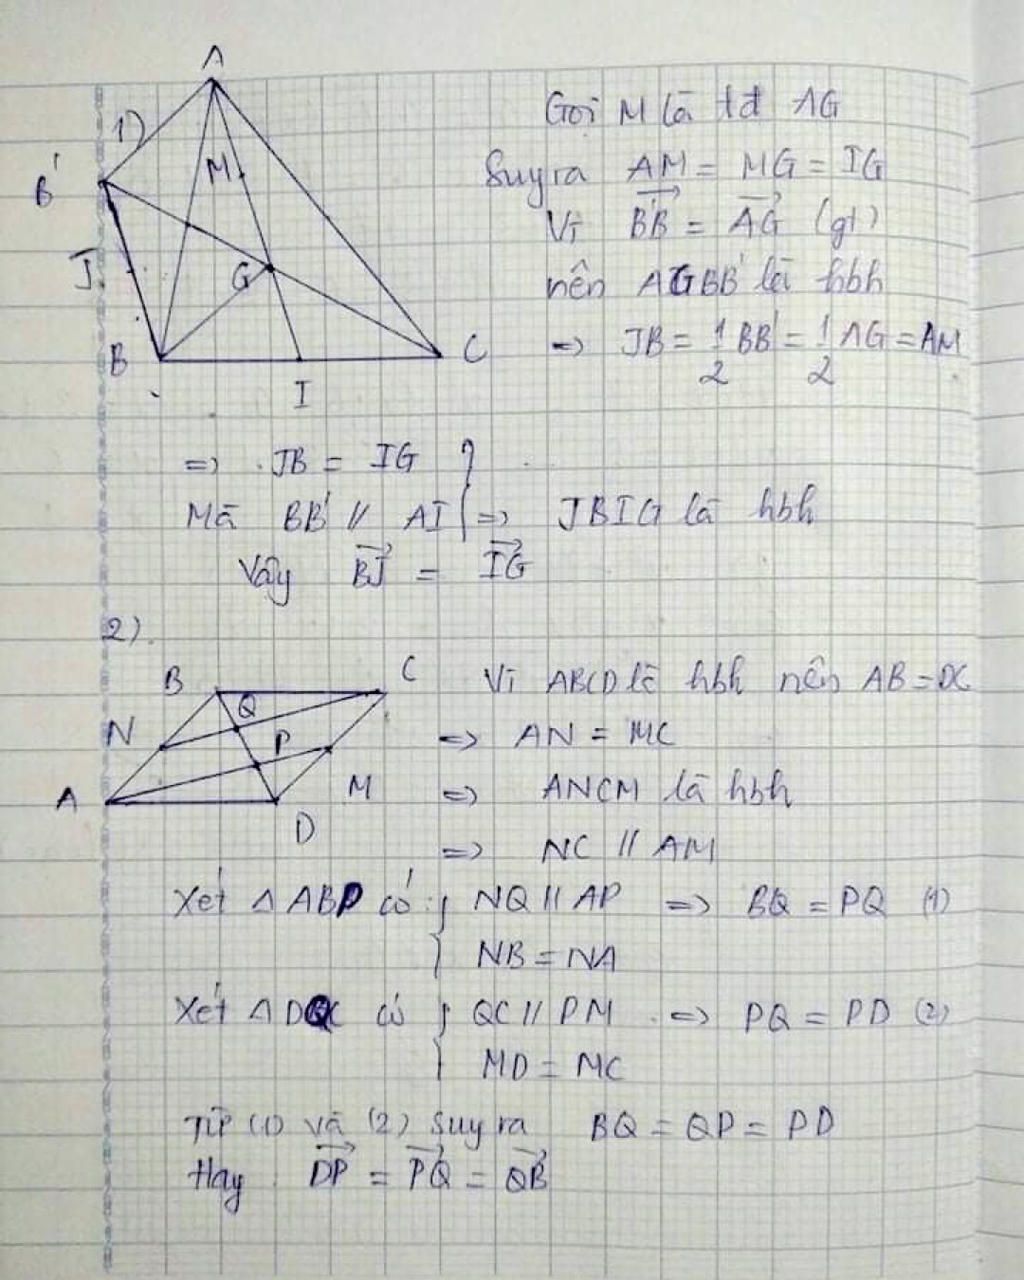 1)
A
B'
M
J
G
B
C
I
Gọi M là tđ AG
Suy ra AM = MG = IG
Vì \overrightarrow{B'B} = \overrightarrow{AG} (gt)
nên AGBB' là hbh
=> JB = 1/2 BB' = 1/2 AG = AM
=> JB = IG
Mà BB' // AI } => JBIG là hbh
Vậy \overrightarrow{BJ} = \overrightarrow{IG}
2)
B
C
N
Q
P
A
M
D
Vì ABCD là hbh nên AB = DC
=> AN = MC
=> ANCM là hbh
=> NC // AM
Xét Δ ABP có : { NQ // AP => BQ = PQ (1)
NB = NA
Xét Δ DQC có { QC // PM => PQ = PD (2)
MD = MC
Từ (1) và (2) suy ra BQ = QP = PD
Hay \overrightarrow{DP} = \overrightarrow{PQ} = \overrightarrow{QB}